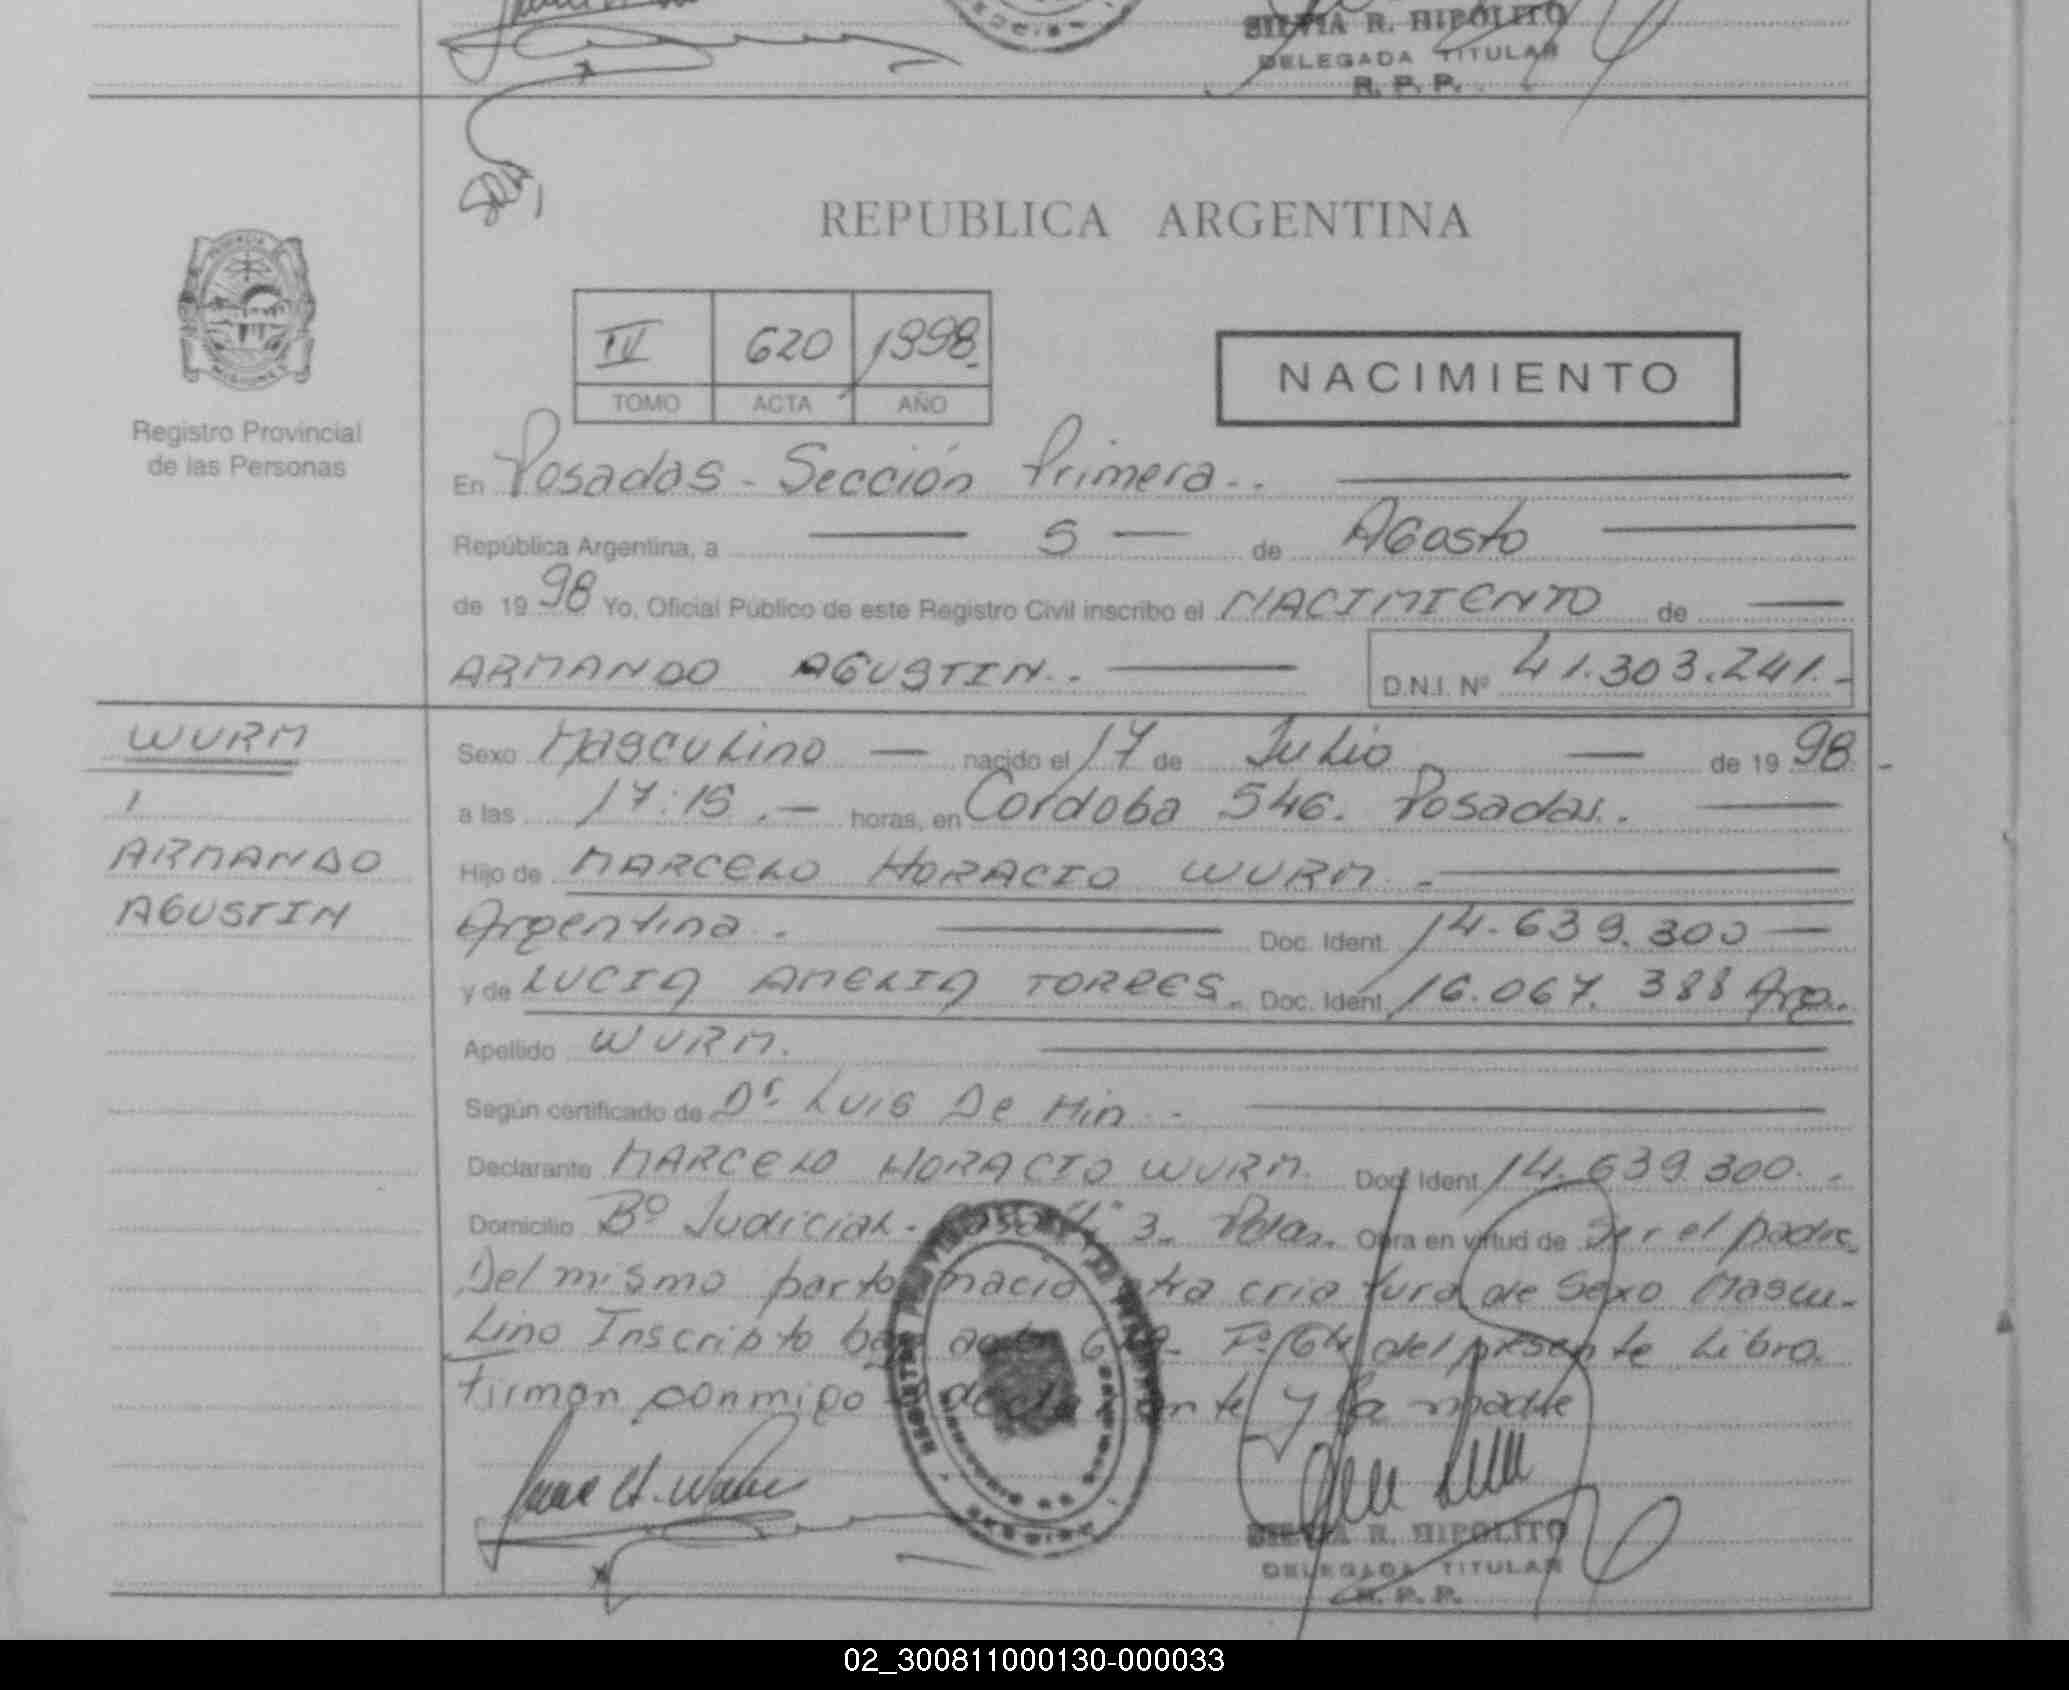 SILVIA R. HIPOLITO
DELEGADA TITULAR
R. P. P.
REPUBLICA ARGENTINA
IV 620 1998
TOMO ACTA AÑO
NACIMIENTO
Registro Provincial
de las Personas
En Posadas - Sección Primera..
República Argentina, a 5 de Agosto
de 1998 Yo, Oficial Público de este Registro Civil inscribo el NACIMIENTO de
ARMANDO AGUSTIN.. D.N.I. Nº 41.303.241.-
WURM
1
ARMANDO
AGUSTIN
Sexo Masculino nacido el 17 de Julio de 1998
a las 17:15.- horas, en Cordoba 546. Posadas..
Hijo de MARCELO HORACIO WURM.-
Argentina. Doc. Ident. 14.639.300
y de LUCIA AMELIA TORRES. Doc. Ident. 16.067.388 Arg.
Apellido WURM.
Según certificado de Dr Luis De Min.-
Declarante MARCELO HORACIO WURM. Doc. Ident. 14.639.300.-
Domicilio Bº Judicial. 3. Pdas. Obra en virtud de Ser el padre
Del mismo parto nacio otra criatura de Sexo Mascu-
Lino Inscripto bajo acta Fº 64 del presente Libro.
firman conmigo declarante y la madre
SILVIA R. HIPOLITO
DELEGADA TITULAR
R. P. P.
02_300811000130-000033